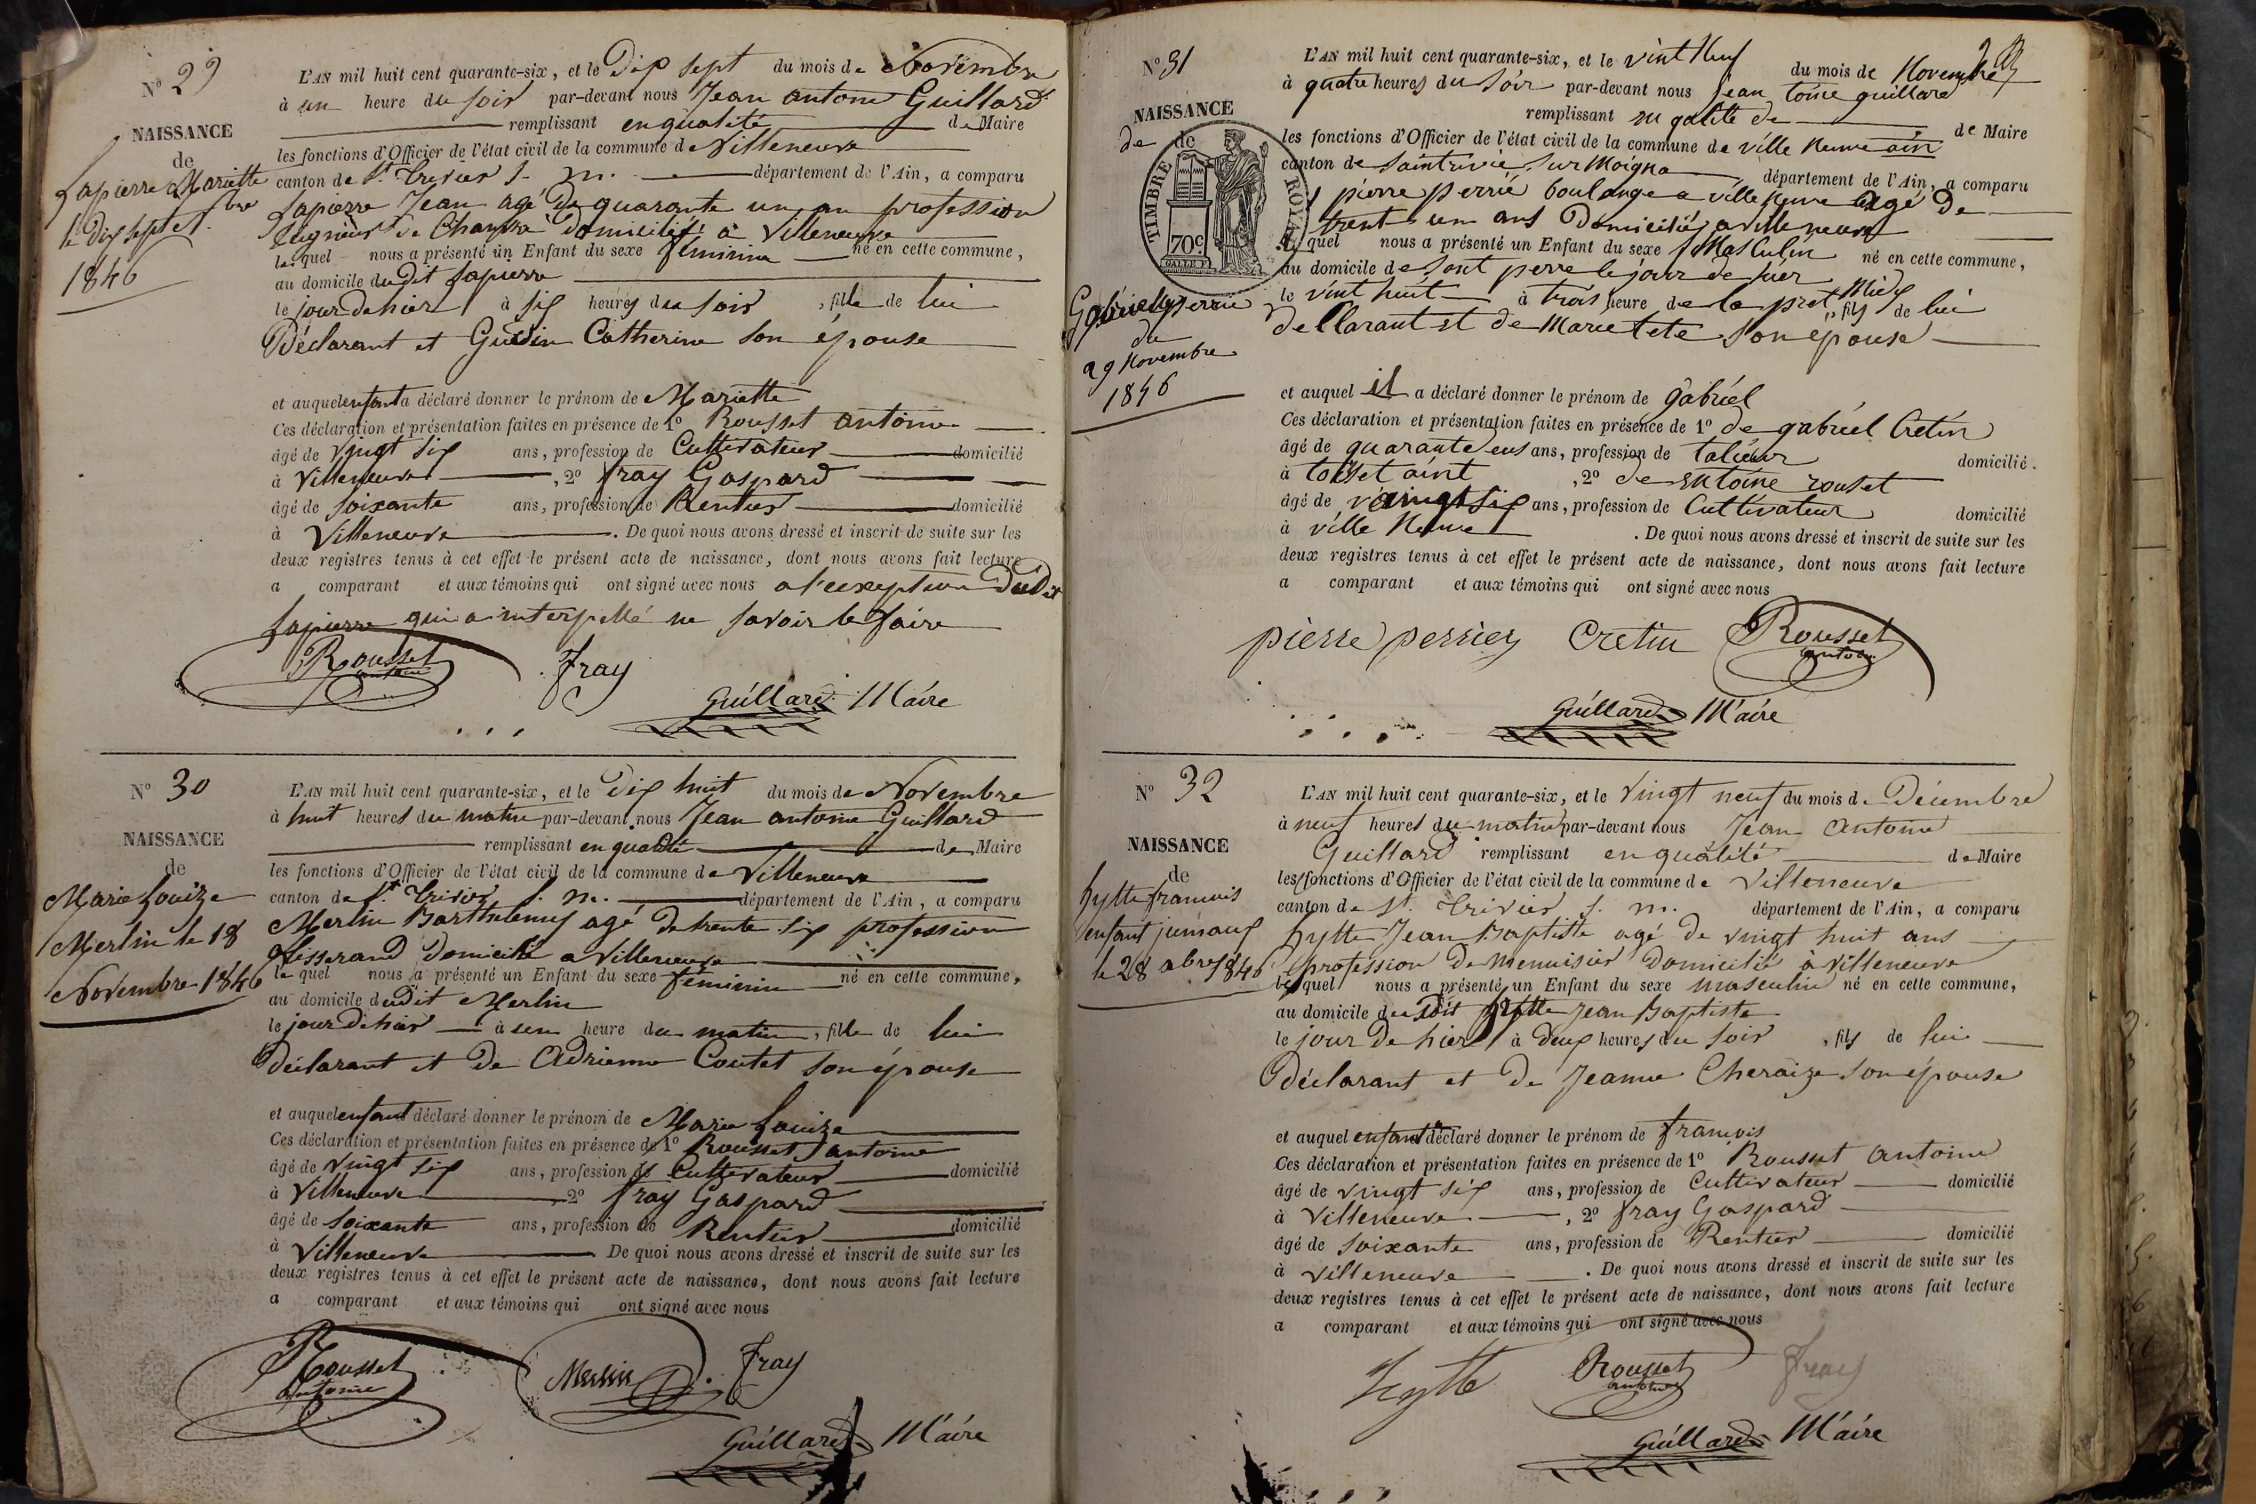 N° 29
NAISSANCE
de
Lapierre Mariette
le dix sept 9bre
1846
L'AN mil huit cent quarante-six, et le Dix sept du mois de Novembre
à un heure du soir par-devant nous Jean antoine Guillard
remplissant en qualité de Maire
les fonctions d'Officier de l'état civil de la commune de Villeneuve
canton de St. Trivier S. m. département de l'Ain, a comparu
Lapierre Jean agé de quarante un an profession
de domicilié à Villeneuve
lequel nous a présenté un Enfant du sexe féminin né en cette commune,
au domicile du dit Lapierre
le jour de hier à six heures du soir, fille de lui
Déclarant et Guédin Catherine son épouse
et auquel enfant a déclaré donner le prénom de Mariette
Ces déclaration et présentation faites en présence de 1° Rousset antoine
âgé de vingt six ans, profession de Cultivateur domicilié
à Villeneuve, 2° fray Gaspard
âgé de soixante ans, profession de Rentier domicilié
à Villeneuve. De quoi nous avons dressé et inscrit de suite sur les
deux registres tenus à cet effet le présent acte de naissance, dont nous avons fait lecture
a comparant et aux témoins qui ont signé avec nous a l'exception Dudit
Lapierre qui a interpellé ne savoir le faire
Rousset antoine fray
Guillard Maire
N° 30
NAISSANCE
de
Marie Louize
Merlin le 18
Novembre 1846
L'AN mil huit cent quarante-six, et le Dix huit du mois de Novembre
à huit heures du matin par-devant nous Jean antoine Guillard
remplissant en qualité de Maire
les fonctions d'Officier de l'état civil de la commune de Villeneuve
canton de St. Trivier S. m. département de l'Ain, a comparu
Merlin Barthelemy agé de trente six profession
tisserand domicilié a Villeneuve
le quel nous a présenté un Enfant du sexe féminin né en cette commune,
au domicile dudit Merlin
le jour de hier à un heure du matin, fille de lui
déclarant et De Adrienne Coutet son épouse
et auquel enfant déclaré donner le prénom de Marie Louize
Ces déclaration et présentation faites en présence de 1° Rousset antoine
âgé de vingt six ans, profession de Cultivateur domicilié
à Villeneuve 2° fray Gaspard
âgé de soixante ans, profession de Rentier domicilié
à Villeneuve De quoi nous avons dressé et inscrit de suite sur les
deux registres tenus à cet effet le présent acte de naissance, dont nous avons fait lecture
a comparant et aux témoins qui ont signé avec nous
Rousset antoine Merlin fray
Guillard Maire
N° 31
NAISSANCE
de de
TIMBRE ROYAL
70c
Gabriel perrie
du
29 Novembre
1846
L'AN mil huit cent quarante-six, et le vint Neuf du mois de Novembre
à quatre heures du Soir par-devant nous jean toine guillard
remplissant en qalité de de Maire
les fonctions d'Officier de l'état civil de la commune de ville Neuve ain
canton de saintrivie sur Moigna département de l'Ain, a comparu
pierre perrié boulange a ville Neuve agé de
trent un ans Domicilié a ville neuve
le quel nous a présenté un Enfant du sexe Masculin né en cette commune,
au domicile de sont perre le jour de hier
le vint huit à trois heure de la pret Midy, fils de lui
dellarant et de Marie tete son epouse
et auquel il a déclaré donner le prénom de gabriel
Ces déclaration et présentation faites en présence de 1° de gabriel Cretin
âgé de quarante ans, profession de domicilié.
à, 2° de entoine rouset
âgé de vingt six ans, profession de Cultivateur domicilié
à ville Neuve. De quoi nous avons dressé et inscrit de suite sur les
deux registres tenus à cet effet le présent acte de naissance, dont nous avons fait lecture
a comparant et aux témoins qui ont signé avec nous
pierre perrier Cretin Rousset antoine
Guillard Maire
N° 32
NAISSANCE
de
hytte francois
enfant jumaux
le 28 xbre 1846
L'AN mil huit cent quarante-six, et le Vingt neuf du mois de Décembre
à neuf heures du matin par-devant nous Jean Antoine
Guillard remplissant en qualité de Maire
les fonctions d'Officier de l'état civil de la commune de Villeneuve
canton de St. Trivier S. m. département de l'Ain, a comparu
hytte Jean Baptiste agé de vingt huit ans
profession De menuisier Domicilié à Villeneuve
lequel nous a présenté un Enfant du sexe masculin né en cette commune,
au domicile du Dit hytte Jean Baptiste
le jour De hier à deux heures du soir, fils de lui
Déclarant et De Jeanne Cheraize son épouse
et auquel enfant déclaré donner le prénom de francois
Ces déclaration et présentation faites en présence de 1° Rousset antoine
âgé de vingt six ans, profession de Cultivateur domicilié
à Villeneuve, 2° fray Gaspard
âgé de soixante ans, profession de Rentier domicilié
à Villeneuve. De quoi nous avons dressé et inscrit de suite sur les
deux registres tenus à cet effet le présent acte de naissance, dont nous avons fait lecture
a comparant et aux témoins qui ont signé avec nous
hytte Rousset antoine fray
Guillard Maire